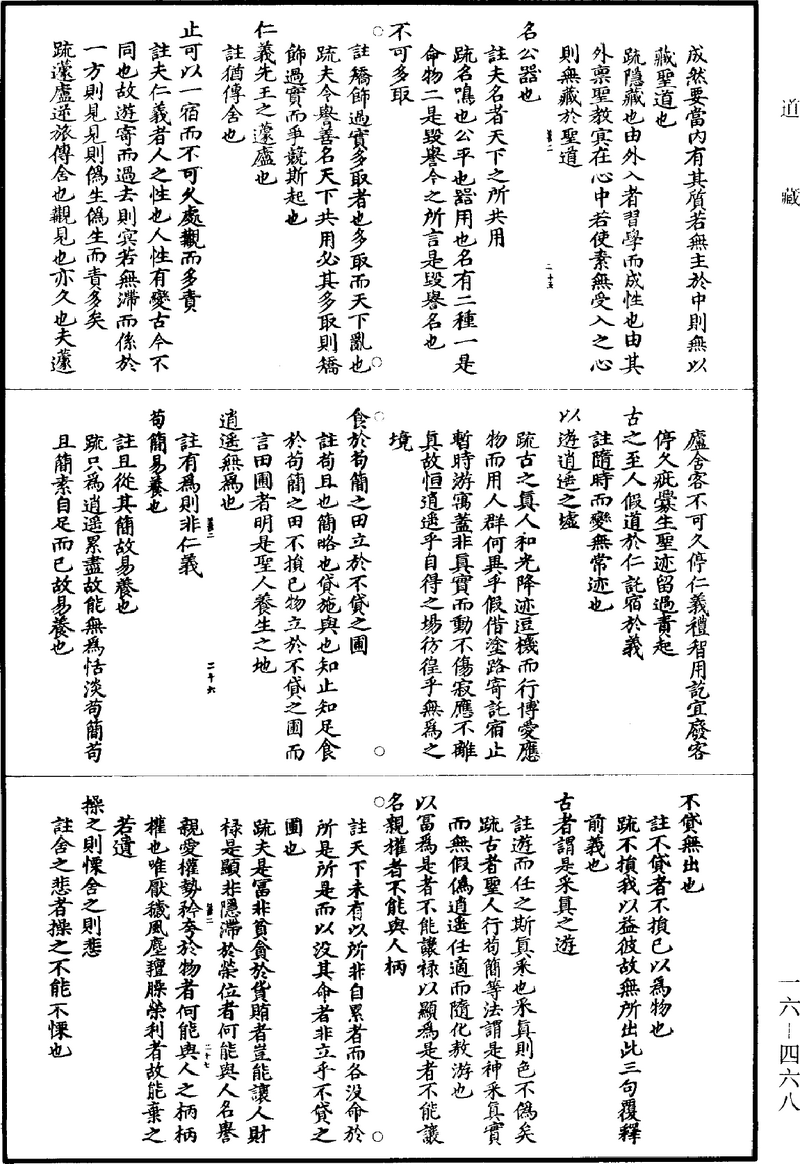 道藏
成然要當內有其質若無主於中則無以
藏聖道也
疏隱藏也由外入者習學而成性也由其
外禀聖教㝠在心中若使素無受入之心
則無藏於聖道
名公器也
註夫名者天下之所共用
疏名鳴也公平也器用也名有二種一是
命物二是毀譽今之所言是毀譽名也
不可多取
註矯飾過實多取者也多取而天下亂也
疏夫令譽善名天下共用必其多取則矯
飾過實而爭競斯起也
仁義先王之蘧廬也
註猶傳舍也
止可以一宿而不可久處觀而多責
註夫仁義者人之性也人性有變古今不
同也故遊寄而過去則㝠若無滯而係於
一方則見見則偽生偽生而責多矣
疏蘧廬逆旅傳舍也觀見也亦久也夫蘧
廬舍客不可久停仁義禮智用訖宜廢客
停久疵釁生聖迹留過責起
古之至人假道於仁託宿於義
註隨時而變無常迹也
以遊逍遥之墟
疏古之真人和光降迹逗機而行博愛應
物而用人群何異乎假借塗路寄託宿止
暫時游寓蓋非真實而動不傷寂應不離
真故恒逍遥乎自得之場彷徨乎無為之
境
食於苟簡之田立於不貸之圃
註苟且也簡略也貸施與也知止知足食
於苟簡之田不損己物立於不貸之圃而
言田圃者明是聖人養生之地
逍遥無為也
註有為則非仁義
二十六
苟簡易養也
註且從其簡故易養也
疏只為逍遥累盡故能無為恬淡苟簡苟
且簡素自足而已故易養也
不貸無出也
註不貸者不損己以為物也
疏不損我以益彼故無所出此三句覆釋
前義也
古者謂是采真之遊
註遊而任之斯真采也采真則色不偽矣
疏古者聖人行苟簡等法謂是神采真實
而無假偽逍遥任適而隨化敖游也
以富為是者不能讓祿以顯為是者不能讓
名親權者不能與人柄
註天下未有以所非自累者而各没命於
所是所是而以没其命者非立乎不貸之
圃也
疏夫是富非貧貪於貨賄者豈能讓人財
祿是顯非隱滯於榮位者何能與人名譽
親愛權勢矜夸於物者何能與人之柄柄
二十七
權也唯厭穢風塵羶臊榮利者故能棄之
若遺
操之則慄舍之則悲
註舍之悲者操之不能不慄也
一六–四六八